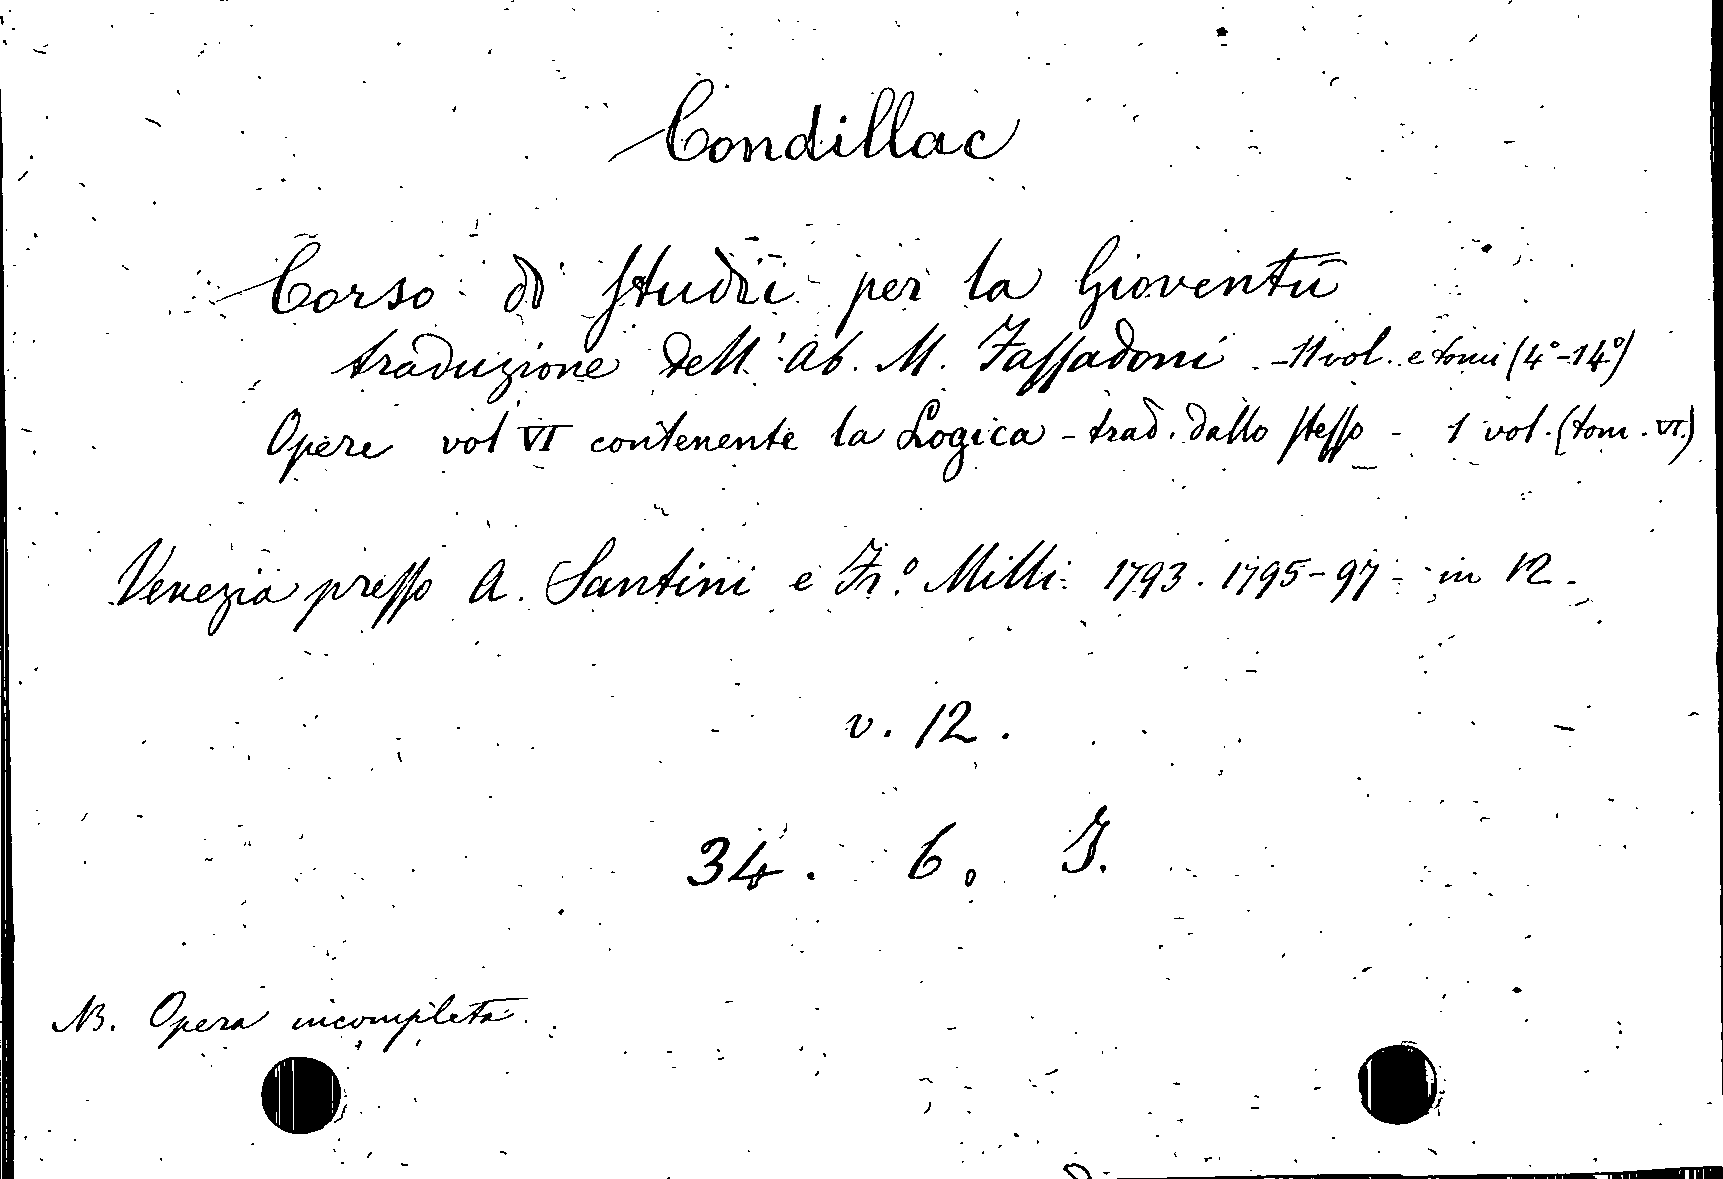 Condillac
Corso di Studii per la Gioventù
traduzione dell'Ab. M. Fassadoni - 11 vol. e tomi (4°-14°)
Opere vol VI contenente la Logica - trad. dallo stesso - 1 vol. (tom. VI.)
Venezia presso A. Santini e Fr.° Milli. 1793. 1795-97 - in 12.
v. 12.
34. 6. I.
NB. Opera incompleta.